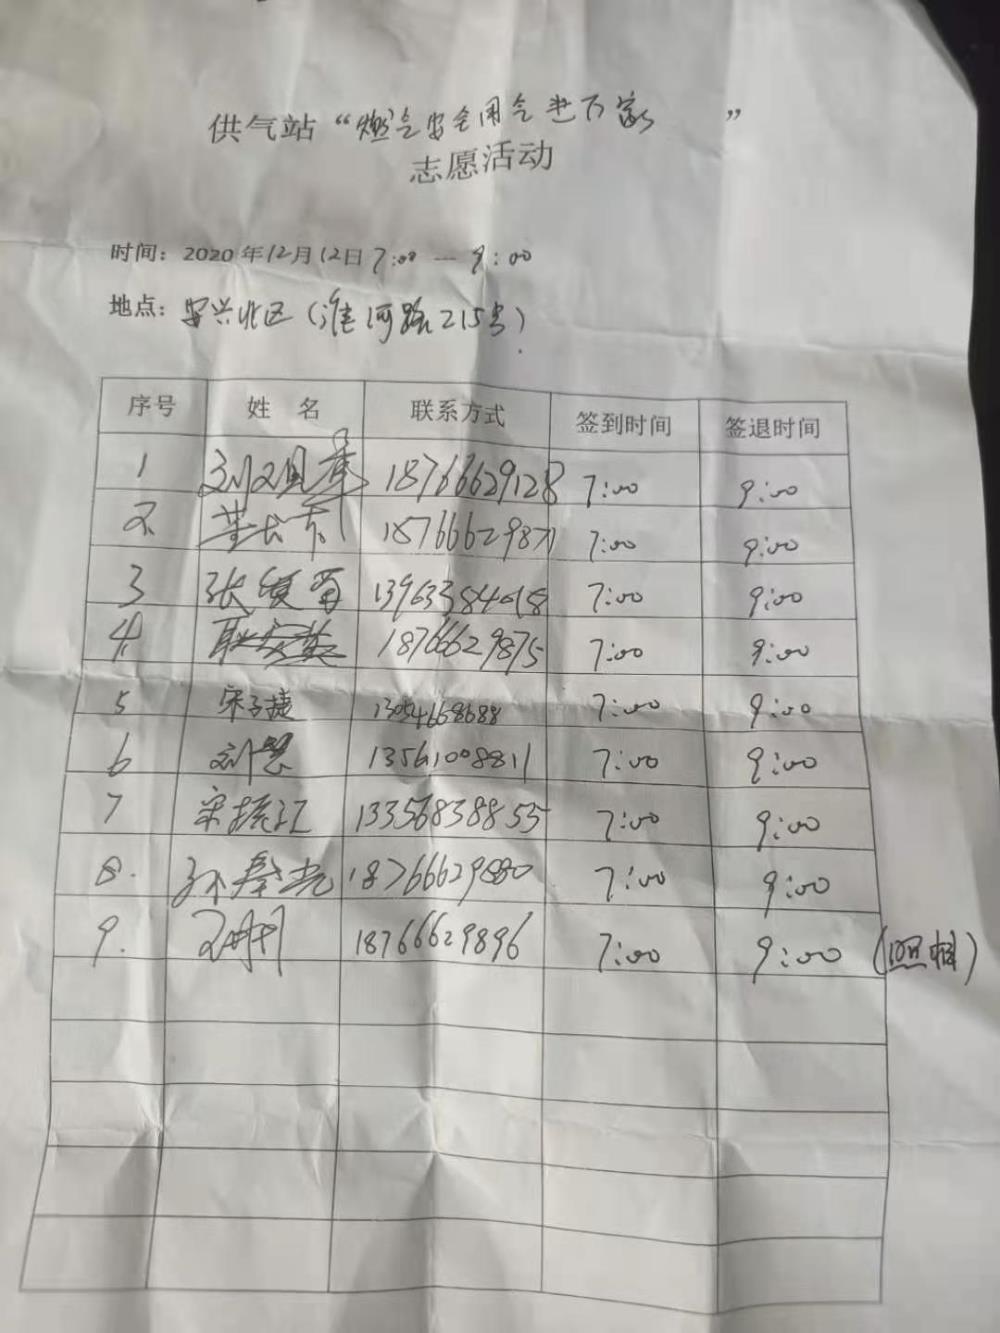 供气站“燃气安全用气进万家”
志愿活动
时间：2020年12月12日7:00 — 9:00
地点：安兴北区（淮河路215号）
序号 姓名 联系方式 签到时间 签退时间
1 18766629128 7:00 9:00
2 18766629871 7:00 9:00
3 张复菊 7:00 9:00
4 18766629875 7:00 9:00
5 宋子捷 13054668688 7:00 9:00
6 刘慧 13561008811 7:00 9:00
7 13356838855 7:00 9:00
8. 孙奉光 18766629880 7:00 9:00
9. 18766629896 7:00 9:00 （照相）